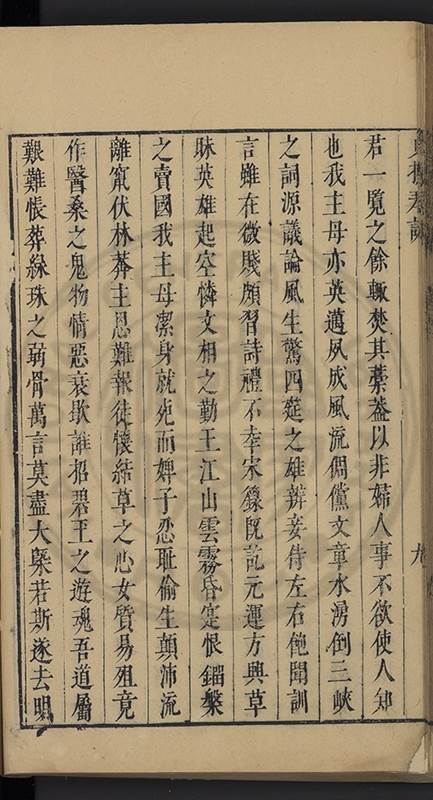 君一覽之餘輒焚其藁蓋以非婦人事不欲使人知
也我主母亦英邁夙成風流倜儻文章水湧倒三峽
之詞源議論風生驚四筵之雄辨妾侍左右飽聞訓
言雖在微賤頗習詩禮不幸宋籙既訖元運方興草
昧英雄起空憐文相之勤王江山雲霧昏寔恨鎦槃
之賣國我主母潔身就死而婢子忍耻偷生顛沛流
離竄伏林莽主恩難報徒懷結草之心女質易殂竟
作醫桑之鬼物情惡衰歇誰招碧玉之遊魂吾道屬
艱難悵葬綠珠之弱骨萬言莫盡大槩若斯遂去明
九